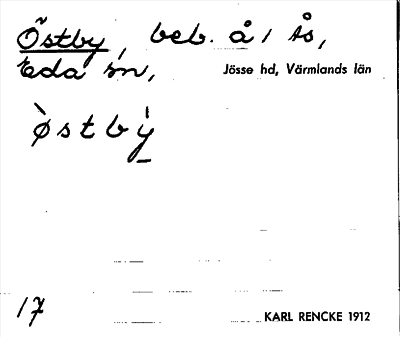 Östby, beb. å 1 ts,
Eda sn,
Jösse hd, Värmlands län
ø̀stbỳ
17
KARL RENCKE 1912